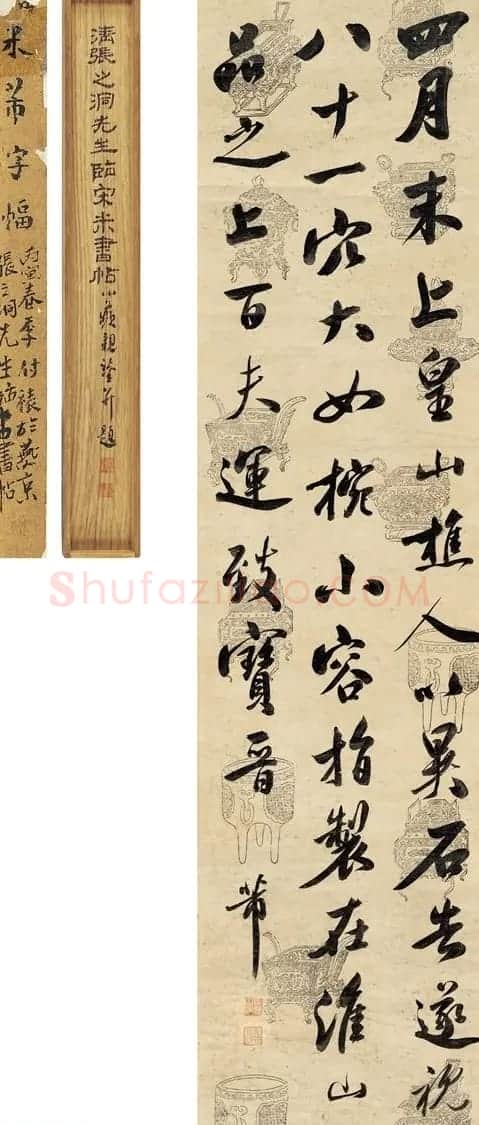 四月末上皇山樵人以異石告遂視
八十一穴大如椀小容指製在淮山
品之上百夫運致寶晉
芾
清張之洞先生臨宋米書帖
米芾字幅
丙寅春季付裱於燕京
張之洞先生
書帖